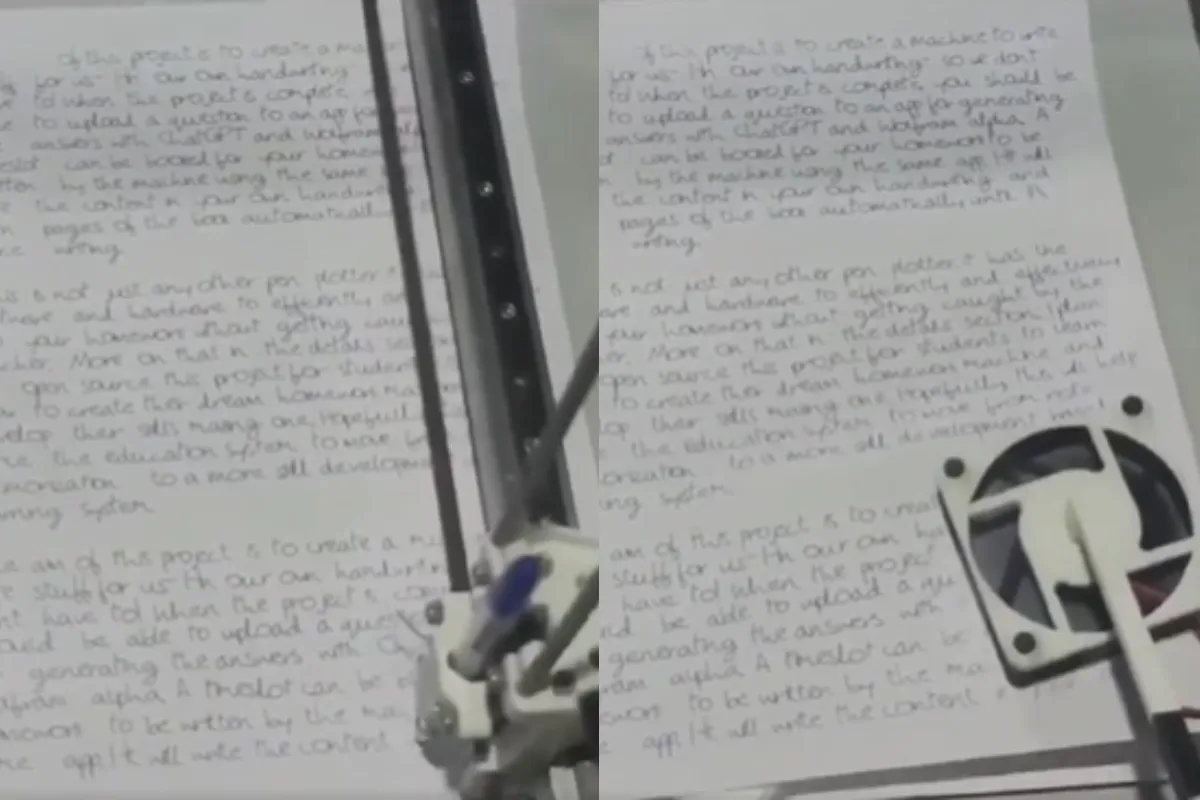 of this project is to create a mac
for us- Ith our own handwriting
to) when the project is complete
to upload a question to an app for
answers with ChatGPT and wolfram alp
can be booked for your homew
by the machine using the same
the content in your own handwriti
pages of the book automatically
writing
is not just any other pen plotter it
and hardware to efficiently an
your homework without getting caug
More on that in the details sec
open source this project for student
to create their dream homework ma
their skills making one. Hopefull
the education system to move
to a more skill developme
system
aim of this project is to create a m
stuff for us- Ith our own handwritin
have to) When the project is com
be able to upload a ques
generating the answers with Ch
alpha. A timeslot can be
to be written by the ma
app. It will write the content
of this project is to create a machine to write
for us- Ith our own handwriting- so we don't
to) when the project is complete you should be
to upload a question to an app for generating
answers with ChatGPT and wolfram alpha. A
can be booked for your homework to be
by the machine using the same app. It will
the content in your own handwriting and
pages of the book automatically until it
writing
is not just any other pen plotter it has the
and hardware to efficiently and effectively
your homework without getting caught by the
More on that in the details section. I plan
open source this project for students to learn
to create their dream homework machine and
their skills making one. Hopefully, this will help
the education system to move from
to a more skill development
system
aim of this project is to crea
stuff for us- Ith our own ha
have to) When the project
be able to upload a que
generating the answers with
alpha. A timeslot can be
to be written by the ma
app. It will write the content